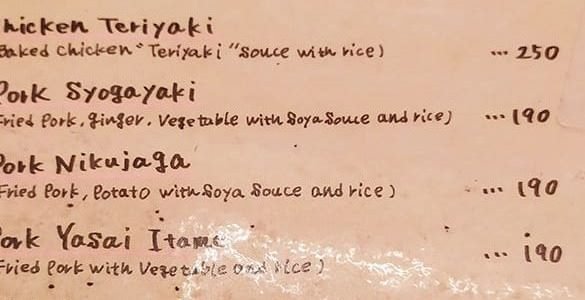 hicken Teriyaki
Baked chicken "Teriyaki" Souce with rice) ... 250
Pork Syogayaki
Fried Pork, ginger, Vegetable with Soya Souce and rice) ... 190
Pork Nikujaga
Fried Pork, Potato with Soya Souce and rice) ... 190
ork Yasai Itame
Fried Pork with Vegetable and rice) ... 190